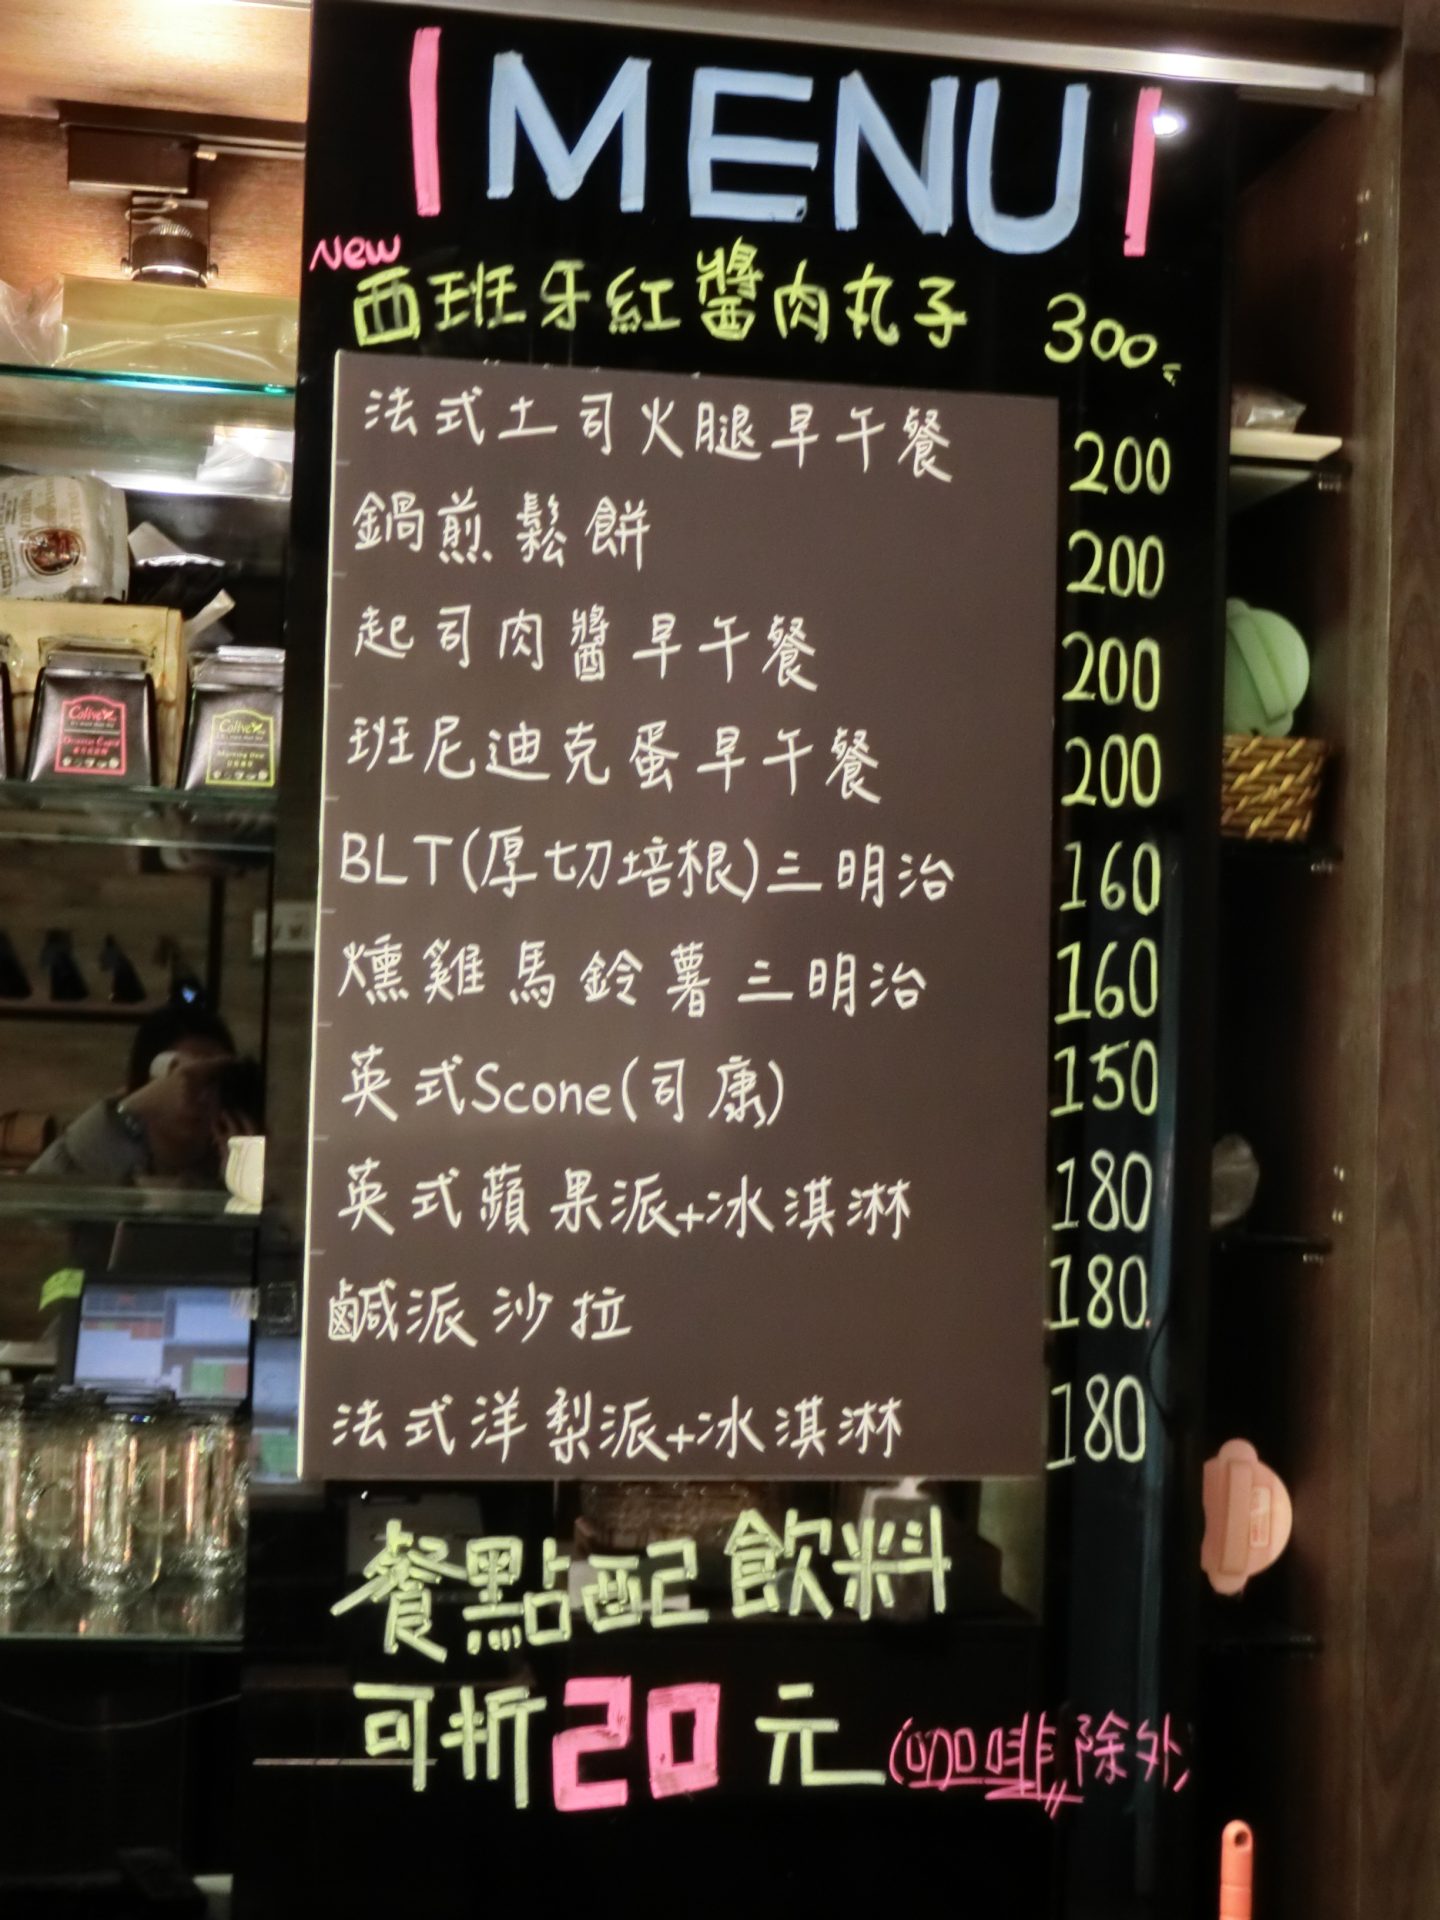 MENU
New
西班牙紅醬肉丸子 300.-
法式土司火腿早午餐 200
鍋煎鬆餅 200
起司肉醬早午餐 200
班尼迪克蛋早午餐 200
BLT(厚切培根)三明治 160
燻雞馬鈴薯三明治 160
英式Scone(司康) 150
英式蘋果派+冰淇淋 180
鹹派沙拉 180
法式洋梨派+冰淇淋 180
餐點配飲料
可折20元(咖啡除外)
Colive
Oriental Cupid
Colive
Morning Dew